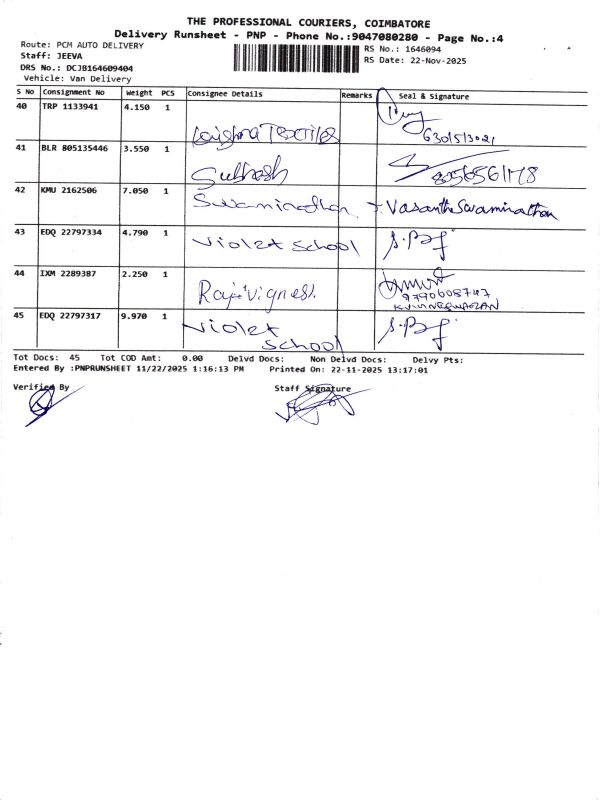 THE PROFESSIONAL COURIERS, COIMBATORE
Delivery Runsheet - PNP - Phone No.:9047080280 - Page No.:4
Route: PCM AUTO DELIVERY
Staff: JEEVA
DRS No.: DCJB164609404
Vehicle: Van Delivery
RS No.: 1646094
RS Date: 22-Nov-2025
S No Consignment No Weight PCS Consignee Details Remarks Seal & Signature
40 TRP 1133941 4.150 1
41 BLR 805135446 3.550 1 Subhash
42 KMU 2162506 7.050 1 Swaminathan Vasantha Swaminathan
43 EDQ 22797334 4.790 1 Violet School
44 IXM 2289387 2.250 1 Raj Vignesh
45 EDQ 22797317 9.970 1 Violet School
Tot Docs: 45 Tot COD Amt: 0.00 Delvd Docs: Non Delvd Docs: Delvy Pts:
Entered By :PNPRUNSHEET 11/22/2025 1:16:13 PM Printed On: 22-11-2025 13:17:01
Verified By Staff Signature